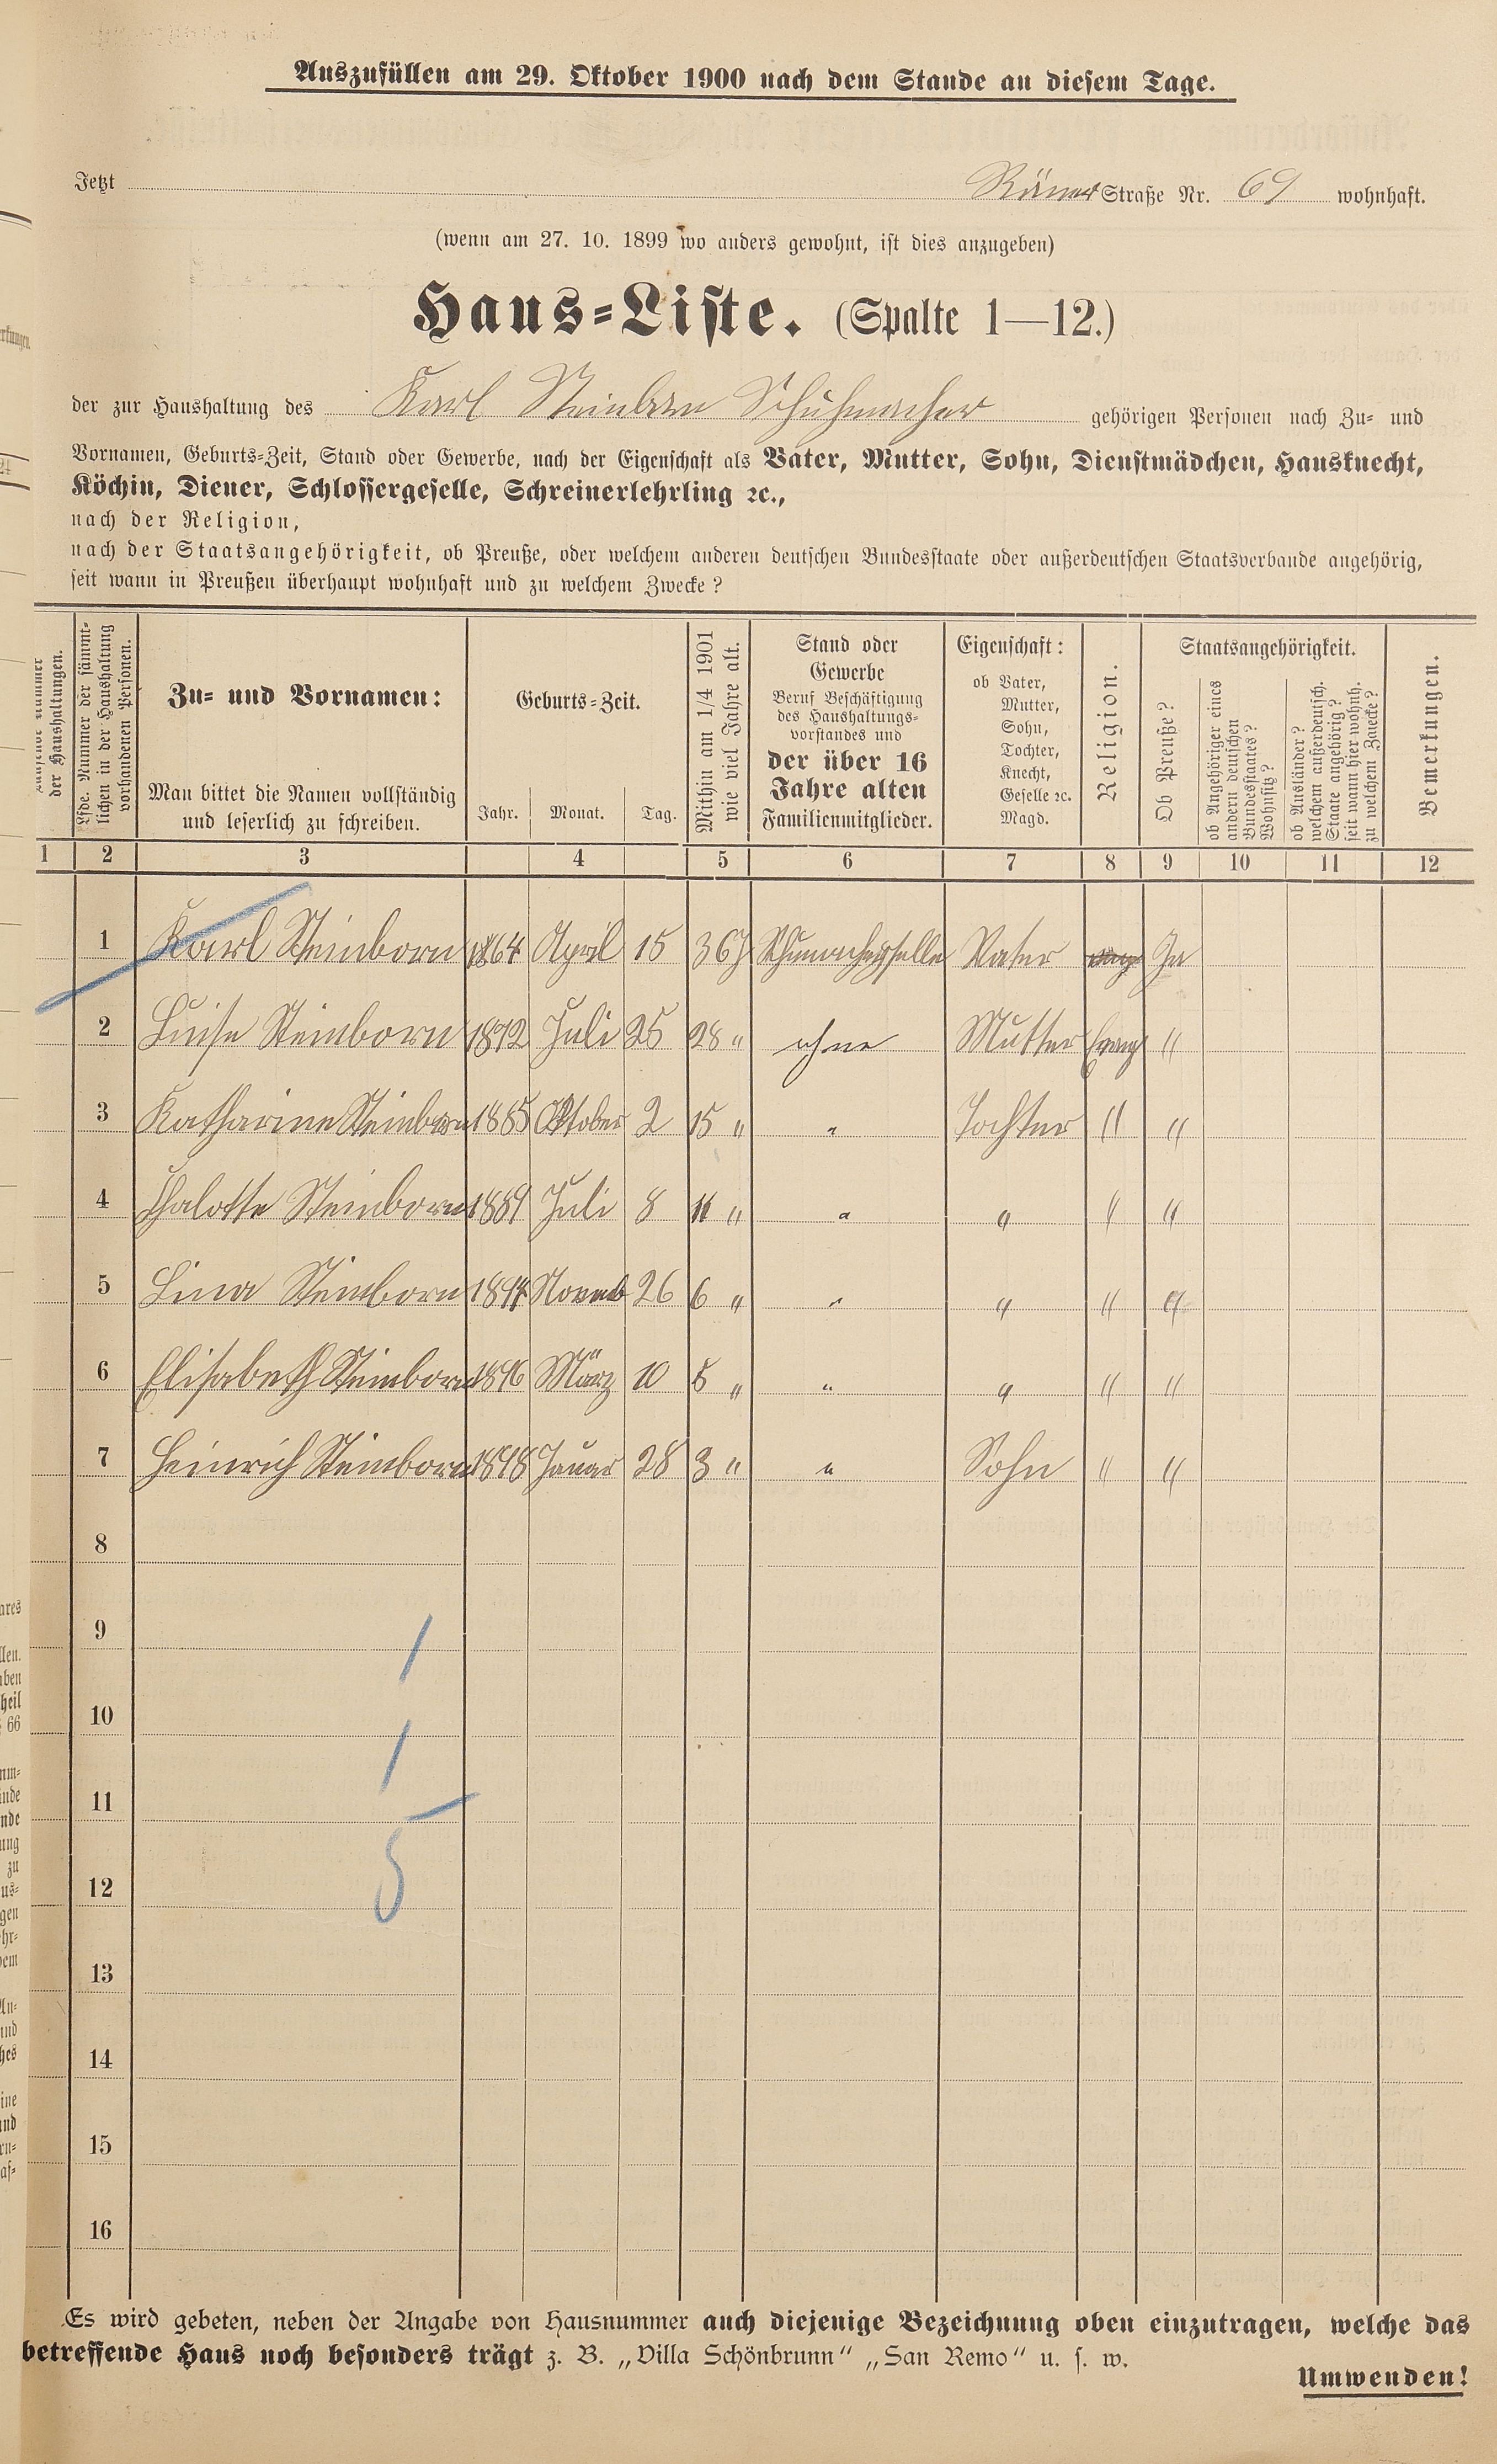 Auszufüllen am 29. Oktober 1900 nach dem Stande an diesem Tage.
Jetzt Straße Nr. 69 wohnhaft.
(wenn am 27. 10. 1899 wo anders gewohnt, ist dies anzugeben)
Haus-Liste. (Spalte 1—12.)
der zur Haushaltung des Karl Steinborn Schuhmacher gehörigen Personen nach Zu- und
Vornamen, Geburts-Zeit, Stand oder Gewerbe, nach der Eigenschaft als Vater, Mutter, Sohn, Dienstmädchen, Hausknecht,
Köchin, Diener, Schlossergeselle, Schreinerlehrling ꝛc.,
nach der Religion,
nach der Staatsangehörigkeit, ob Preuße, oder welchem anderen deutschen Bundesstaate oder außerdeutschen Staatsverbande angehörig,
seit wann in Preußen überhaupt wohnhaft und zu welchem Zwecke?
der Haushaltungen.
Lfde. Nummer der sämmt-
lichen in der Haushaltung
vorhandenen Personen.
Zu- und Vornamen:
Man bittet die Namen vollständig
und leserlich zu schreiben.
Geburts-Zeit.
Jahr. Monat. Tag.
Mithin am 1/4 1901
wie viel Jahre alt.
Stand oder
Gewerbe
Beruf Beschäftigung
des Haushaltungs-
vorstandes und
der über 16
Jahre alten
Familienmitglieder.
Eigenschaft:
ob Vater,
Mutter,
Sohn,
Tochter,
Knecht,
Geselle ꝛc.
Magd.
Religion.
Staatsangehörigkeit.
Ob Preuße?
ob Angehöriger eines
andern deutschen
Bundesstaates?
Wohnsitz?
ob Ausländer?
welchem außerdeutsch.
Staate angehörig?
seit wann hier wohnh.
zu welchem Zwecke?
Bemerkungen.
1 2 3 4 5 6 7 8 9 10 11 12
1 Karl Steinborn 1864 April 15 36 Vater Ja
2 Luise Steinborn 1872 Juli 25 28 " ohne Mutter Evang "
3 Katharine Steinborn 1885 Oktober 2 15 " " Tochter " "
4 Chalotte Steinborn 1889 Juli 8 11 " " " " "
5 Lina Steinborn 1894 Novemb 26 6 " " " " "
6 Elisabeth Steinborn 1896 März 10 5 " " " " "
7 Heinrich Steinborn 1898 Januar 28 3 " " Sohn " "
8
9
10
11
12
13
14
15
16
1
1
5
Es wird gebeten, neben der Angabe von Hausnummer auch diejenige Bezeichnung oben einzutragen, welche das
betreffende Haus noch besonders trägt z. B. „Villa Schönbrunn“ „San Remo“ u. s. w.
Umwenden!